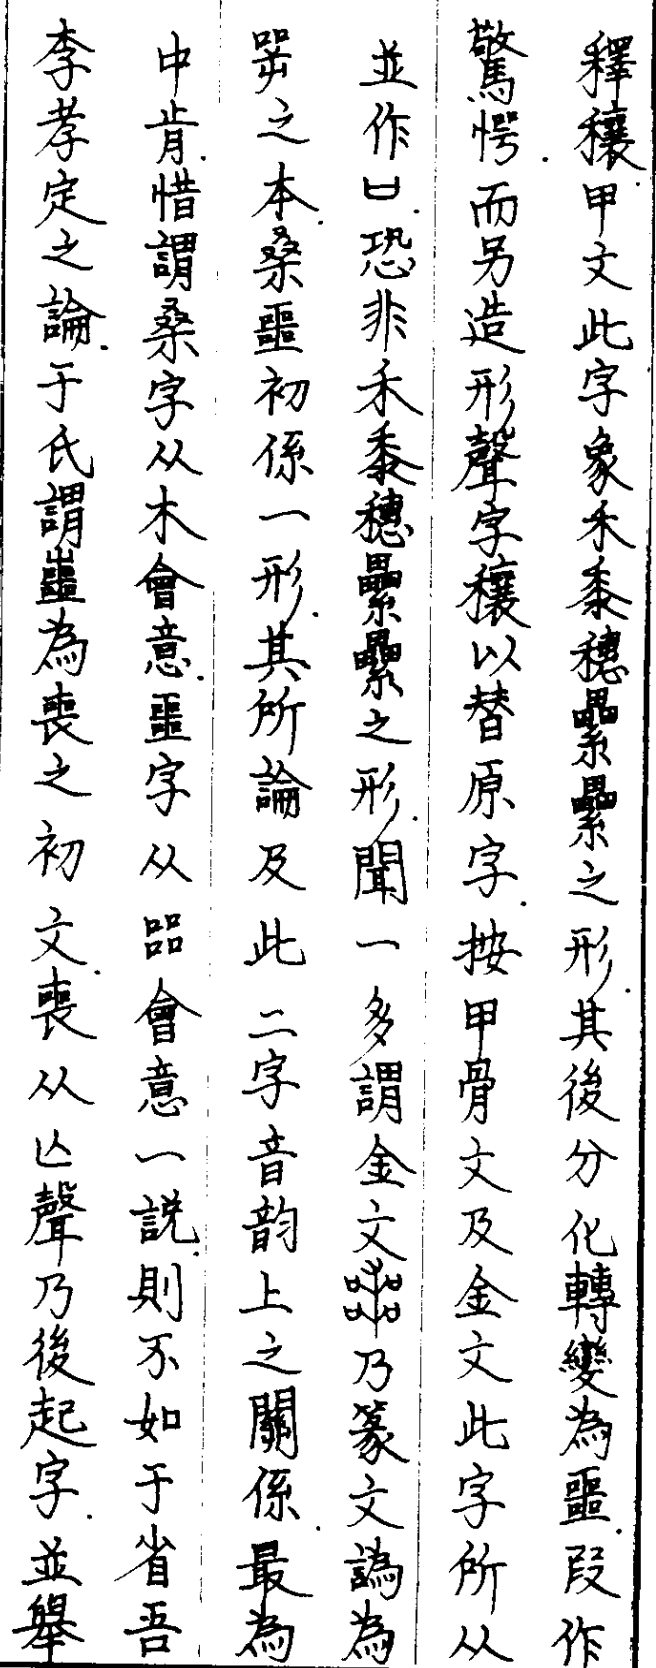 釋穰.甲文此字象禾黍穗纍纍之形.其後分化轉變為噩.叚作
驚愕.而另造形聲字穰以替原字.按甲骨文及金文此字所从
並作ㅂ.恐非禾黍穗纍纍之形.聞一多謂金文乃篆文譌為
噐之本.桑噩初係一形.其所論及此二字音韵上之關係.最為
中肯.惜謂桑字从木會意.噩字从㗊會意一説.則不如于省吾
李孝定之論.于氏謂噩為喪之初文.喪从亾聲乃後起字.並舉